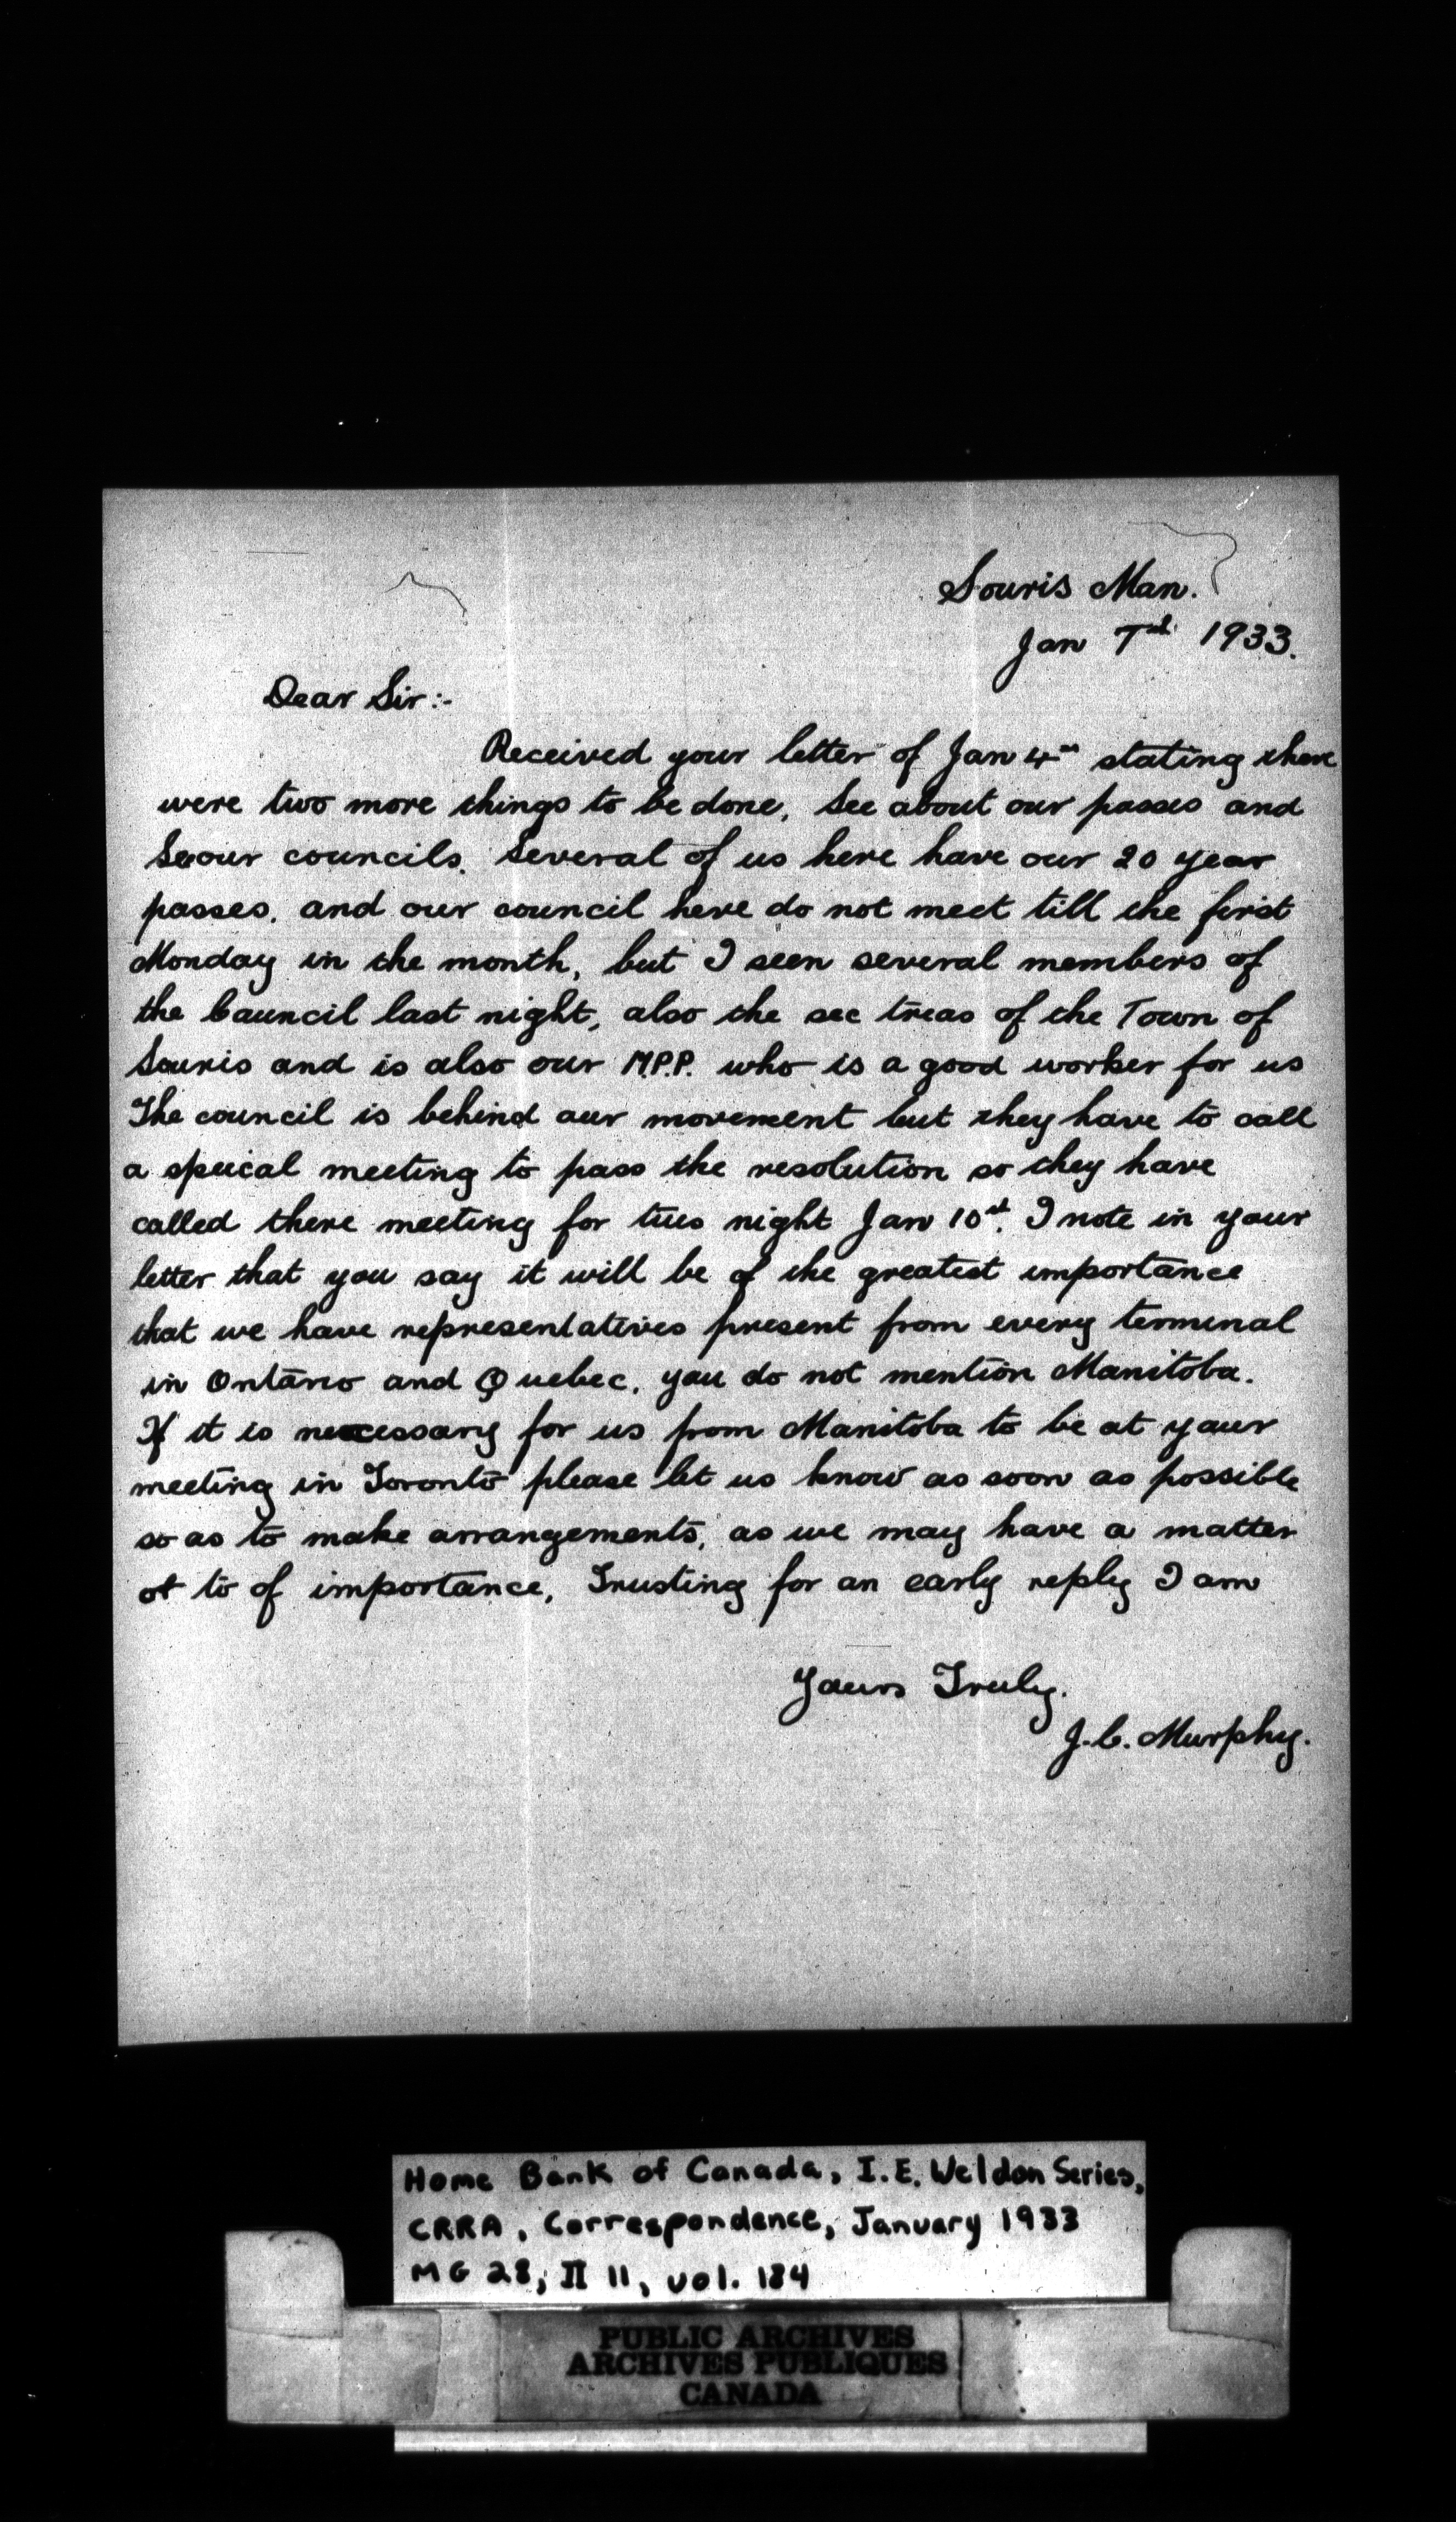 Souris Man.
Jan 7th 1933.
Dear Sir:-
Received your letter of Jan 4th stating there
were two more things to be done, See about our passes and
See our councils. Several of us here have our 20 year
passes, and our council here do not meet till the first
Monday in the month, but I seen several members of
the Council last night, also the sec treas of the Town of
Souris and is also our M.P.P. who is a good worker for us
The council is behind our movement but they have to call
a speical meeting to pass the resolution so they have
called there meeting for tues night Jan 10th. I note in your
letter that you say it will be of the greatest importance
that we have representatives present from every terminal
in Ontario and Quebec, you do not mention Manitoba.
If it is necessary for us from Manitoba to be at your
meeting in Toronto please let us know as soon as possible
so as to make arrangements, as we may have a matter
or to of importance, Trusting for an early reply I am
Yours Truly.
J.C. Murphy.
Home Bank of Canada, I.E. Weldon Series,
CRRA, Correspondence, January 1933
MG 28, II 11, vol. 184
PUBLIC ARCHIVES
ARCHIVES PUBLIQUES
CANADA